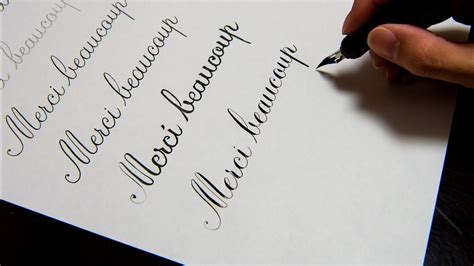 Merci beaucoup
Merci beaucoup
Merci beaucoup
Merci beaucoup